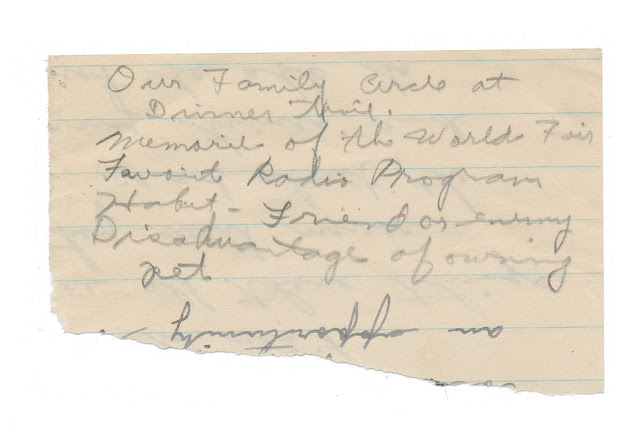 Our Family Circle at
Dinner Time.
Memorie of the World Fair
Favorit Radio Program
Habit - Friend or enemy
Disadvantage of owning
pet
an opportunity